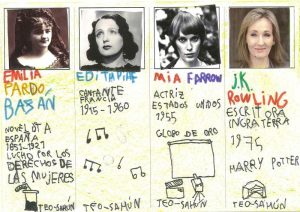 EMILIA
PARDO
BAZÁN
NOVELISTA
ESPAÑA
1851-1921
LUCHÓ POR LOS
DERECHOS DE
LAS MUJERES
TEO-SAHÚN
EDITH PIAF
CANTANTE
FRANCIA
1915-1960
TEO-SAHÚN
MIA FARROW
ACTRIZ
ESTADOS UNIDOS
1955
GLOBO DE ORO
TEO-SAHÚN
J.K.
ROWLING
ESCRITORA
INGRATERRA
1975
HARRY POTTER
TEO-SAHÚN